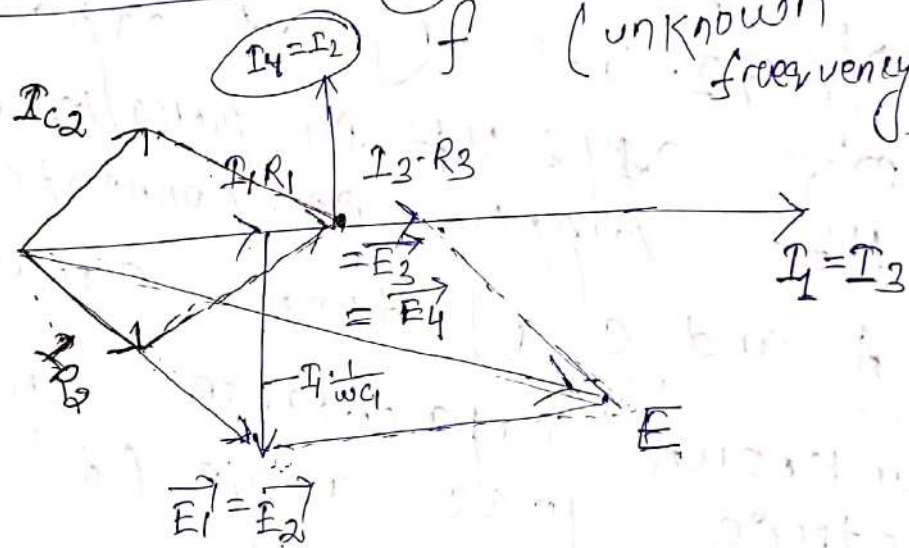 f (unknown
frequency)
I₄ = I₂
I_C2
I₁R₁
I₃·R₃
= E₃
= E₄
I₁ = I₃
I₁·1/ωC₁
E
E₁ = E₂